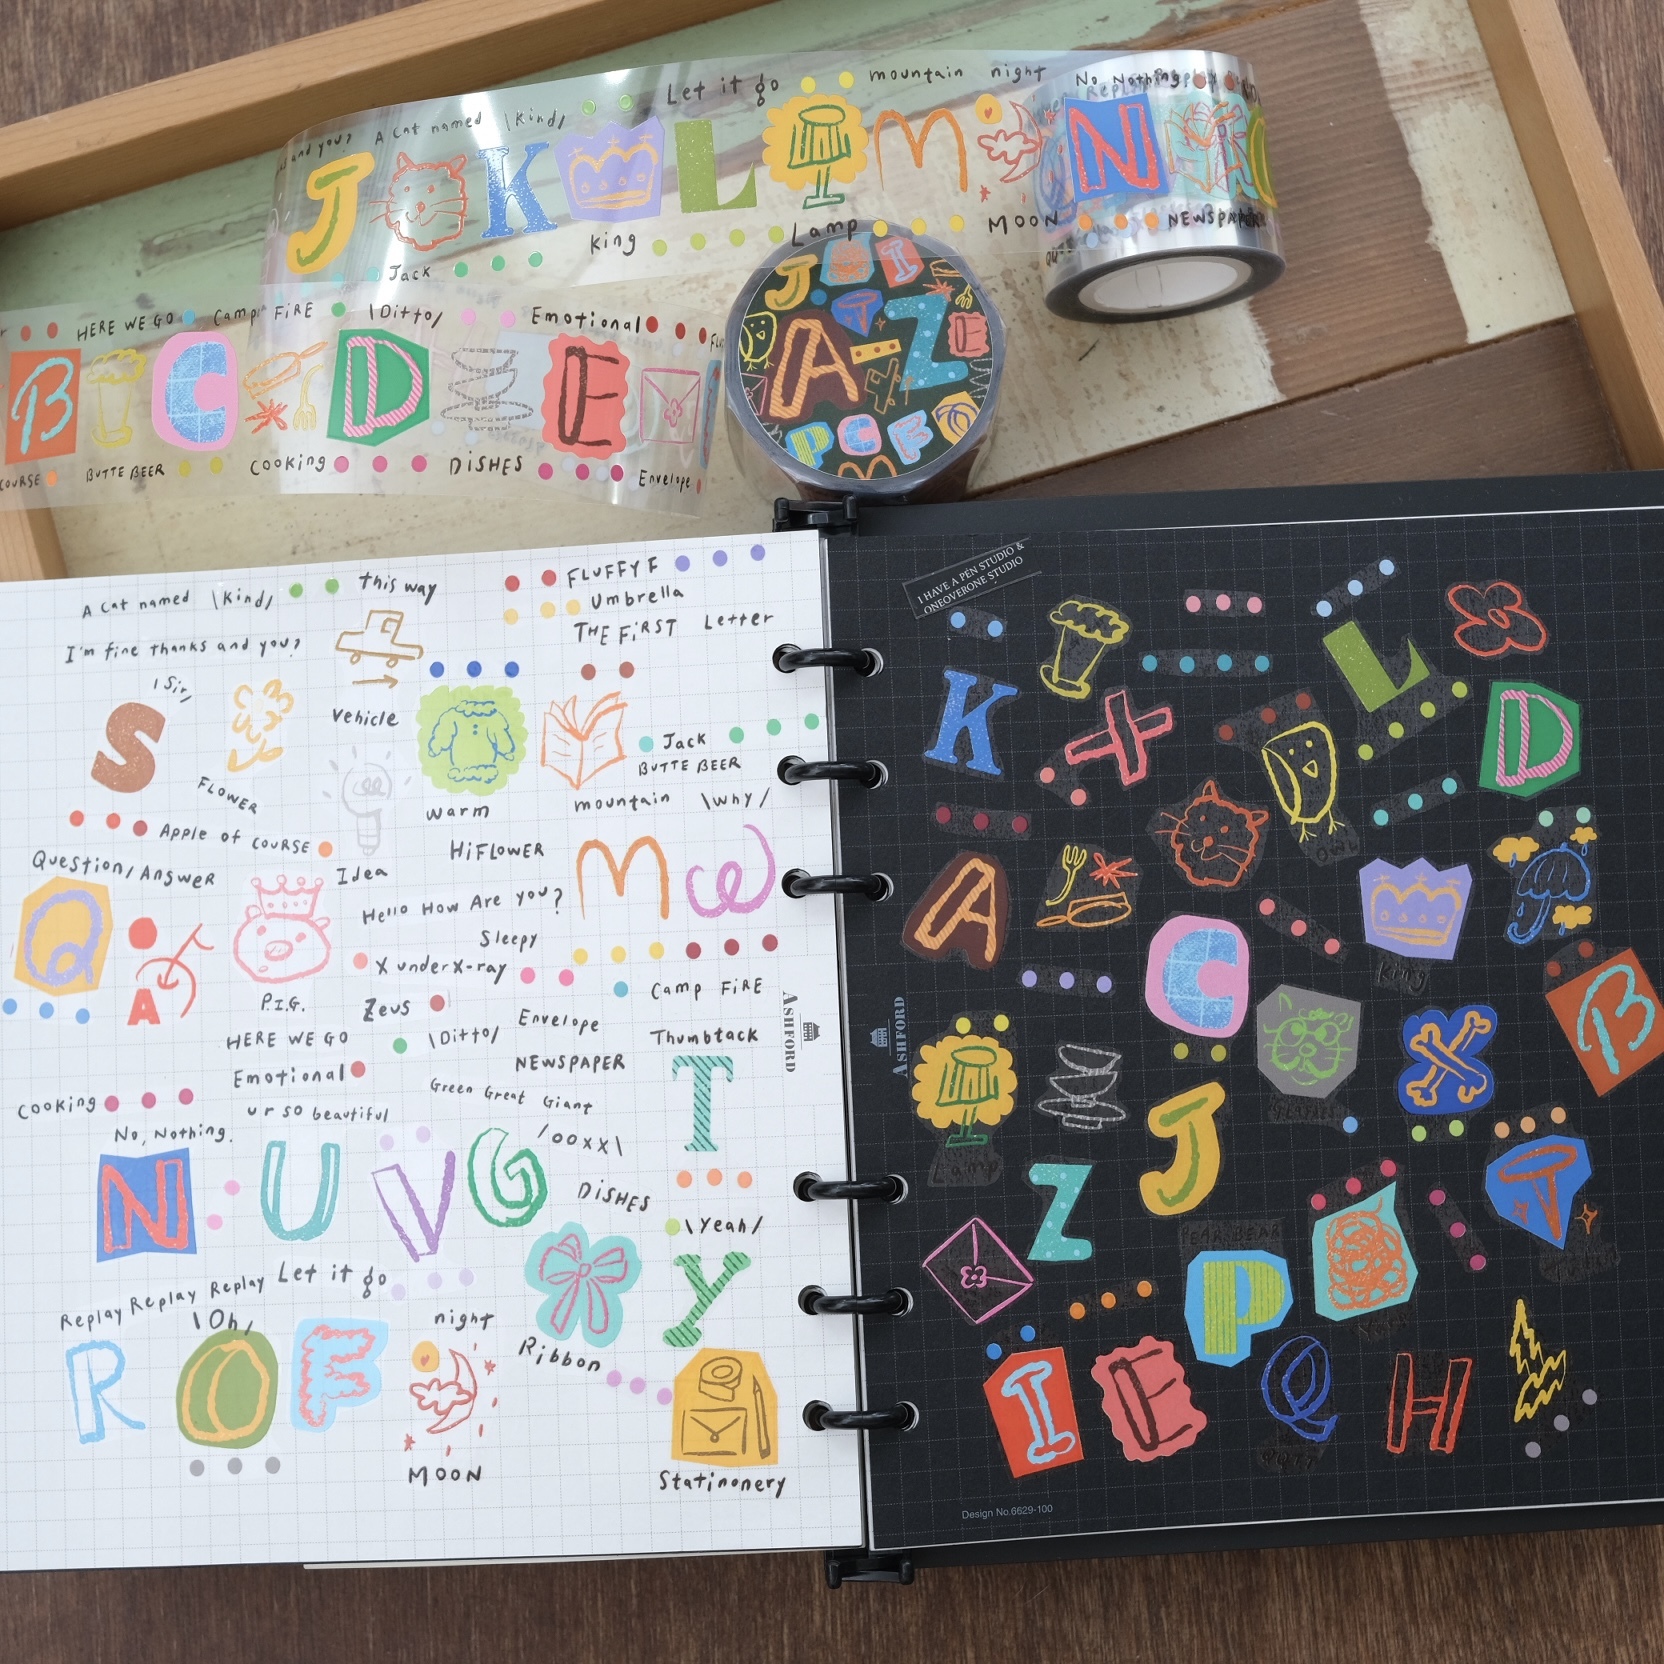 Let it go
mountain night
No, Nothing
and you? A Cat named \Kind/
J K L M N
King
Lamp
MOON
NEWSPAPER
Jack
HERE WE GO
Camp FiRE
\Ditto/
Emotional
B C D E
COURSE
BUTTE BEER
Cooking
DiSHES
Envelope
J I T Z E
A-Z
P C F
M
A Cat named \Kind/
this way
FLUFFY F
Umbrella
THE FiRST Letter
I'm fine thanks and you?
\Sir/
S
Vehicle
Jack
BUTTE BEER
FLOWER
warm
mountain \why/
Apple of COURSE
HiFLOWER
M W
Question/Answer
Idea
Hello How Are you?
Q
A
Sleepy
X under X-ray
P.I.G.
Zeus
Camp FiRE
HERE WE GO
\Ditto/
Envelope
Thumbtack
Emotional
NEWSPAPER
T
Cooking
ur so beautiful
Green Great Giant
No, Nothing.
/ooxx\
N U V G
DiSHES
\Yeah/
Y
Replay Replay Replay
Let it go
\Oh/
night
Ribbon
R O F
MOON
Stationery
ASHFORD
I HAVE A PEN STUDIO &
ONEOVERONE STUDIO
L
K X D
owl
A
C
King
B
X
ASHFORD
J
Lamp
Z
T
PEARSBEAR
P
I E Q H
Design No.6629-100